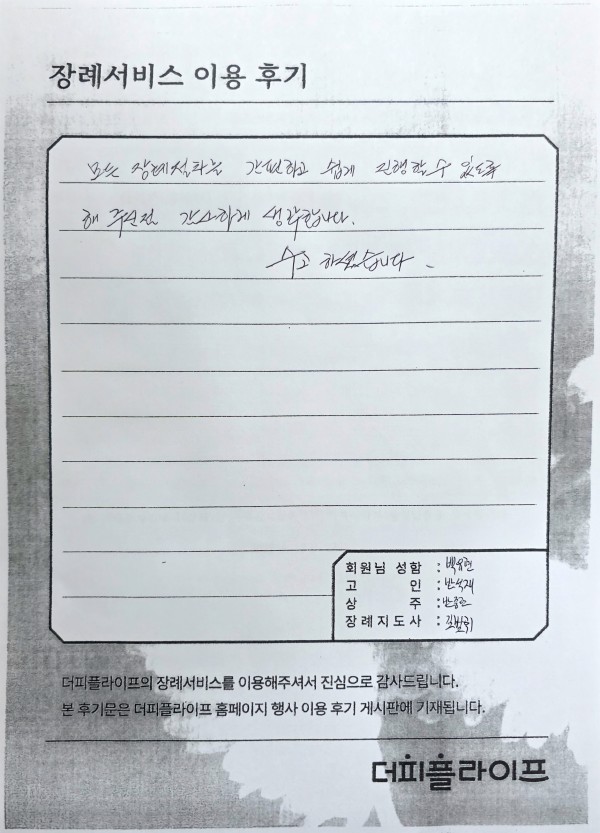 장례서비스 이용 후기
모든 장례절차를 간편하고 쉽게 진행할 수 있도록
해 주신점 감사하게 생각합니다.
수고 하셨습니다.
회원님 성함 : 백유현
고 인 : 반석재
상 주 : 반종윤
장례지도사 :
더피플라이프의 장례서비스를 이용해주셔서 진심으로 감사드립니다.
본 후기문은 더피플라이프 홈페이지 행사 이용 후기 게시판에 기재됩니다.
더피플라이프